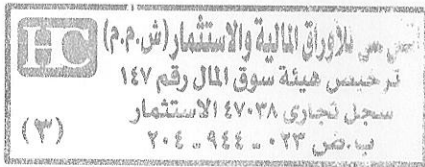 إتش سى للأوراق المالية والاستثمار (ش.م.م)
HC
ترخيص هيئة سوق المال رقم ١٤٧
سجل تجارى ٤٧٠٣٨ الاستثمار
ب.ض ٠٢٣ - ٩٤٤ - ٢٠٤
(٣)